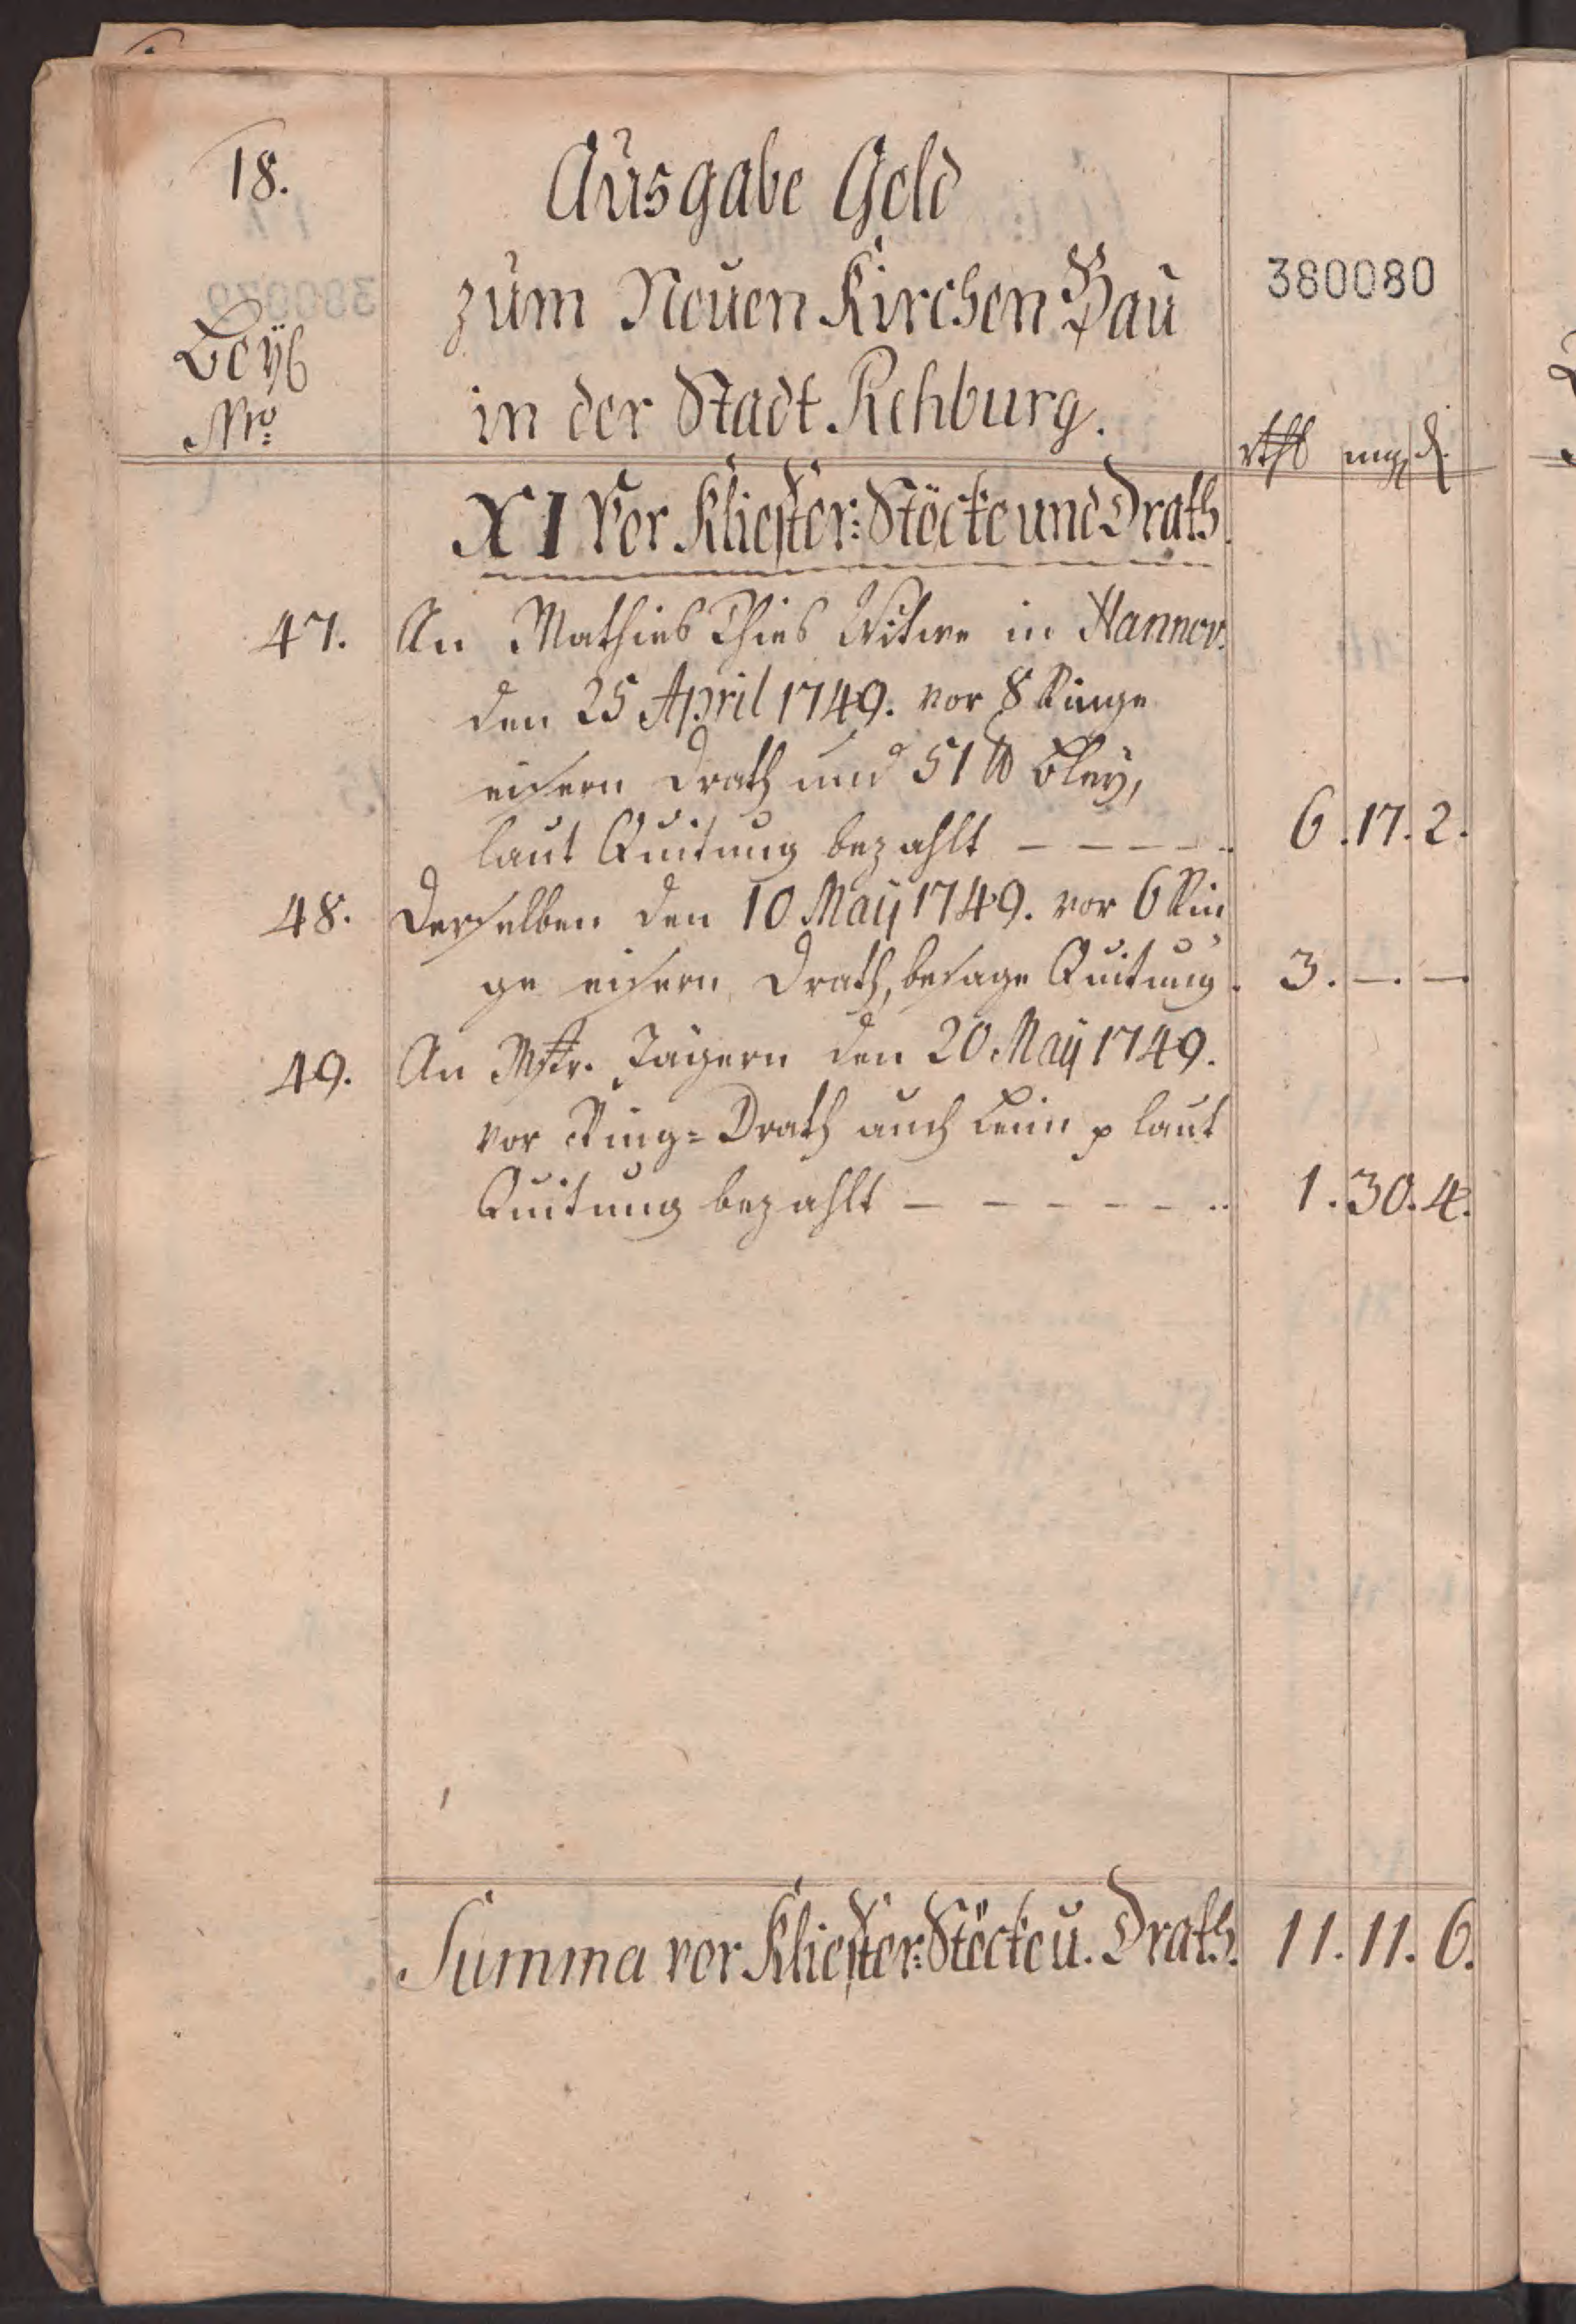 18.
Ausgabe Geld
380080
zum Neuen Kirchen Bau
Beÿl
Nro:
in der Stadt Rehburg.
rthl mgl d.
XI Vor Kliester: Stöcke und Drath.
47. An Mathies Thies Witwe in Hannov.
den 25 April 1749. vor 8 Ringe
eisern Drath und 51 ℔ Bley,
laut Quitung bezahlt – – – – – 6. 17. 2.
48. Derselben den 10 Maÿ 1749. vor 6 Rin
ge eisern Drath, besage Quitung. 3. –. –
49. An Mstr. Jägern den 20 Maÿ 1749.
vor Ring= Drath auch Leim p laut
Quitung bezahlt – – – – – – 1. 30. 4.
Summa vor Kliester: Stöcke u. Drath. 11. 11. 6.